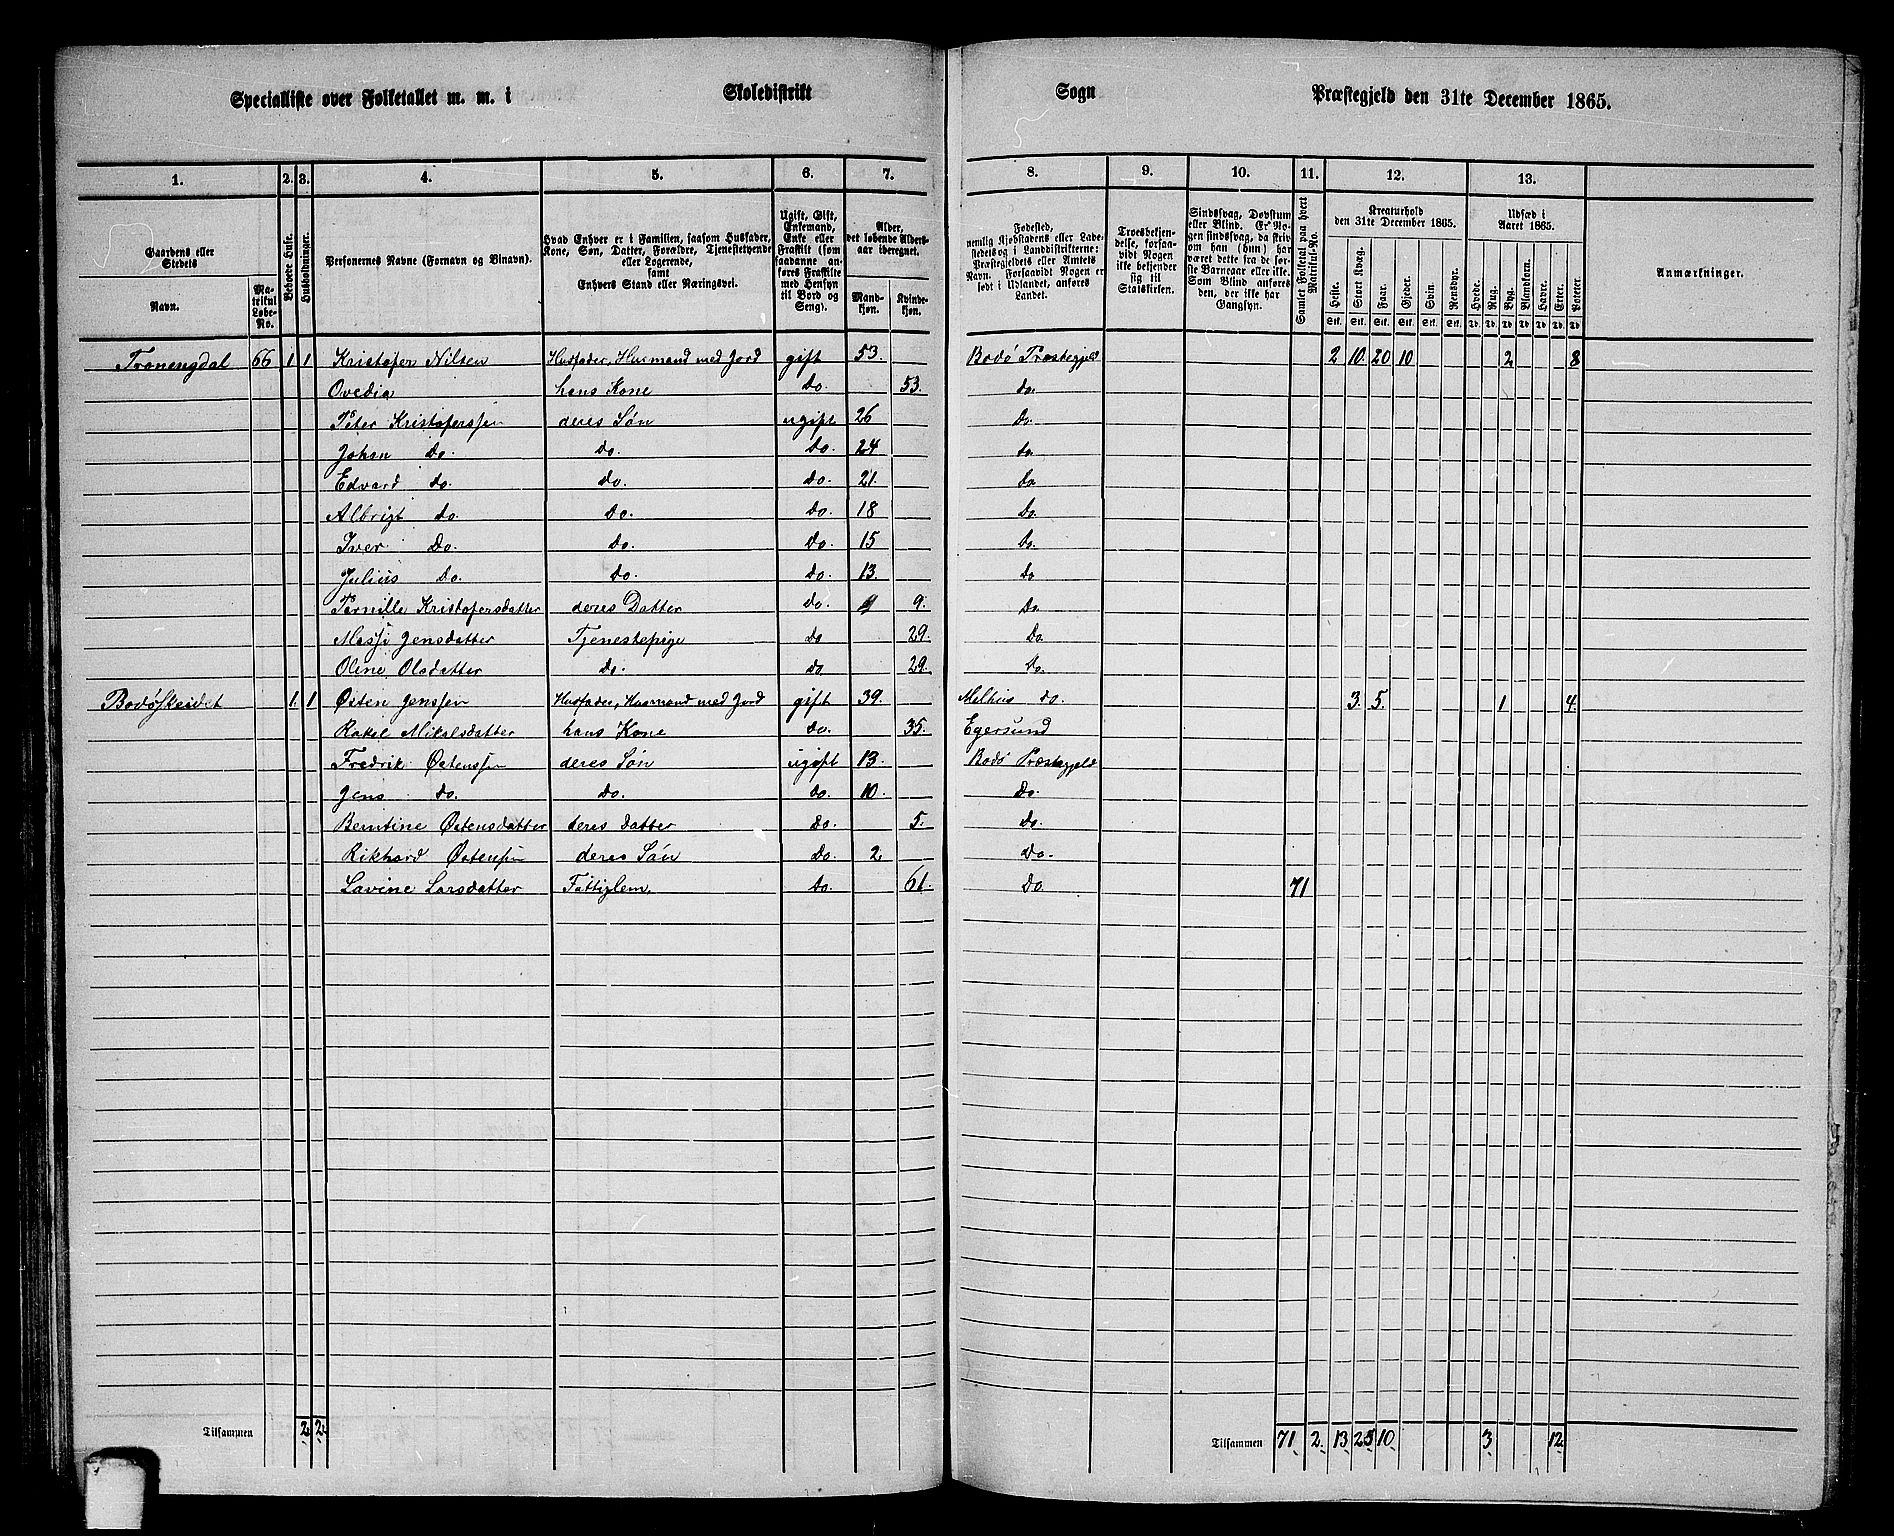 Specialliste over Folketallet m. m. i Skoledistrikt Sogn Præstegjeld den 31te December 1865.
1. 2. 3. 4. 5. 6. 7. 8. 9. 10. 11. 12. 13.
Gaardens eller Stedets
Navn.
Matrikul Løbe-No.
Beboede Huse.
Husholdninger.
Personernes Navne (Fornavn og Binavn).
Hvad Enhver er i Familien, saasom Husfader, Kone, Søn, Datter, Forældre, Tjenestetyende eller Logerende, samt Enhvers Stand eller Næringsvei.
Ugift, Gift, Enkemand, Enke eller Fraskilt (som saadanne anføres Fraskilte med Hensyn til Bord og Seng).
Alder, det løbende Alders-aar iberegnet.
Mand-kjøn.
Kvinde-kjøn.
Fødested, nemlig Kjøbstadens eller Ladestedets og i Landdistrikterne: Præstegjeldets eller Amtets Navn. Forsaavidt Nogen er født i Udlandet, anføres Landet.
Troesbekjendelse, forsaavidt Nogen ikke bekjender sig til Statskirken.
Sindssvag, Døvstum eller Blind. Er Nogen sindssvag, da skrives om han (hun) har været dette fra de første Barneaar eller ikke. Som Blind anføres den, der ikke har Gangsyn.
Samlet Folketal paa hvert Matrikuls-No.
Kreaturhold den 31te December 1865.
Heste. Stort Kvæg. Faar. Gjeder. Svin. Rensdyr.
Stk. Stk. Stk. Stk. Stk. Stk.
Udsæd i Aaret 1865.
Hvede. Rug. Byg. Blandkorn. Havre. Erter. Poteter.
Td. Td. Td. Td. Td. Td. Td.
Anmærkninger.
Tronengdal 66 1 1 Kristofer Nilsen Husfader, Husmand med Jord gift 53. Bodø Præstegjeld 2 10. 20 10 2 8
Ovedia hans Kone Do. 53. do.
Peter Kristoferssen deres Søn ugift 26 Do.
Johan Do. Do. Do. 24 do.
Edvard do. Do. Do. 21. Do.
Albrigt do. Do. Do. 18 Do.
Iver Do. Do. Do. 15 Do.
Julius Do. Do. Do. 13. Do
Pernille Kristofersdatter deres Datter Do. 9. Do.
Massi Jensdatter Tjenestepige Do 29. Do.
Oline Olsdatter Do. Do. 29. Do.
Bodøskeidet 1. 1 Østen Jenssen Husfader, Husmand med Jord gift 39. Melhus do. 3. 5. 1 4.
Rakel Mikalsdatter hans Kone Do. 35. Egersund
Fredrik Østenssen deres Søn ugift 13. Bodø Præstegjeld
Jens do. Do. Do. 10. Do.
Berntine Østensdatter deres datter Do. 5. Do.
Rikhard Østensen deres Søn Do. 2. Do.
Lavine Larsdatter Fattiglem, Do. 61. Do. 71
Tilsammen 2 2 Tilsammen 71 2. 13 25 10 3 12